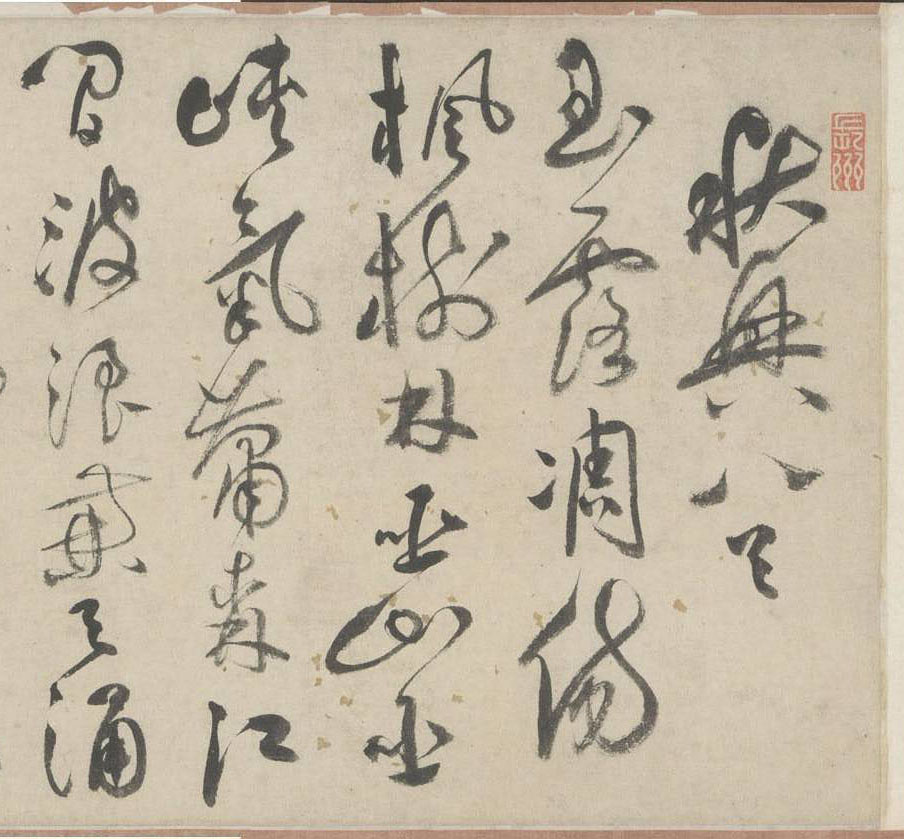 長州
秋興八首
玉露凋傷
楓樹林巫山巫
峽氣蕭森江
間波浪兼天涌